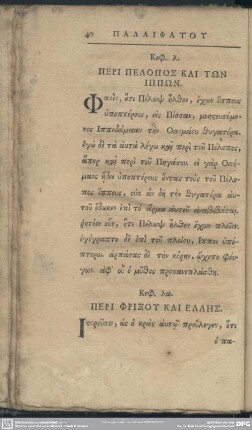 40 ΠΑΛΑΙΦΑΤΟΥ
Κεφ. λ.
ΠΕΡΙ ΠΕΛΟΠΟΣ ΚΑΙ ΤΩΝ
ΙΠΠΩΝ.
Φασὶν, ὅτι Πέλοψ ἦλθεν, ἔχων ἵππους
ὑποπτέρους, εἰς Πίσσαν, μνηστευσόμε-
νος Ἱπποδάμειαν τὴν Οἰνομάου θυγατέρα.
ἐγὼ δὲ τὰ αὐτὰ λέγω καὶ περὶ τοῦ Πέλοπος,
ἅπερ καὶ περὶ τοῦ Πηγάσου. εἰ γὰρ Οἰνό-
μαος ᾔδει ὑποπτέρους ὄντας τοὺς τοῦ Πέλο-
πος ἵππους, οὐκ ἂν δὴ τὴν θυγατέρα αὐ-
τοῦ ἔδωκεν ἐπὶ τὸ ἅρμα αὐτοῦ ἀναβιβάσαι.
ῥητέον οὖν, ὅτι Πέλοψ ἦλθεν ἔχων πλοῖον.
ἐγέγραπτο δὲ ἐπὶ τοῦ πλοίου, ἵπποι ὑπό-
πτεροι. ἁρπάσας δὲ τὴν κόρην, ᾤχετο φεύ-
γων. ἀφ' οὗ ὁ μῦθος προσανεπλάσθη.
Κεφ. λα.
ΠΕΡΙ ΦΡΙΞΟΥ ΚΑΙ ΕΛΛΗΣ.
Ἱστοροῦσιν, ὡς ὁ κριὸς αὐτῷ προέλεγεν, ὅτι
ὁ πα-